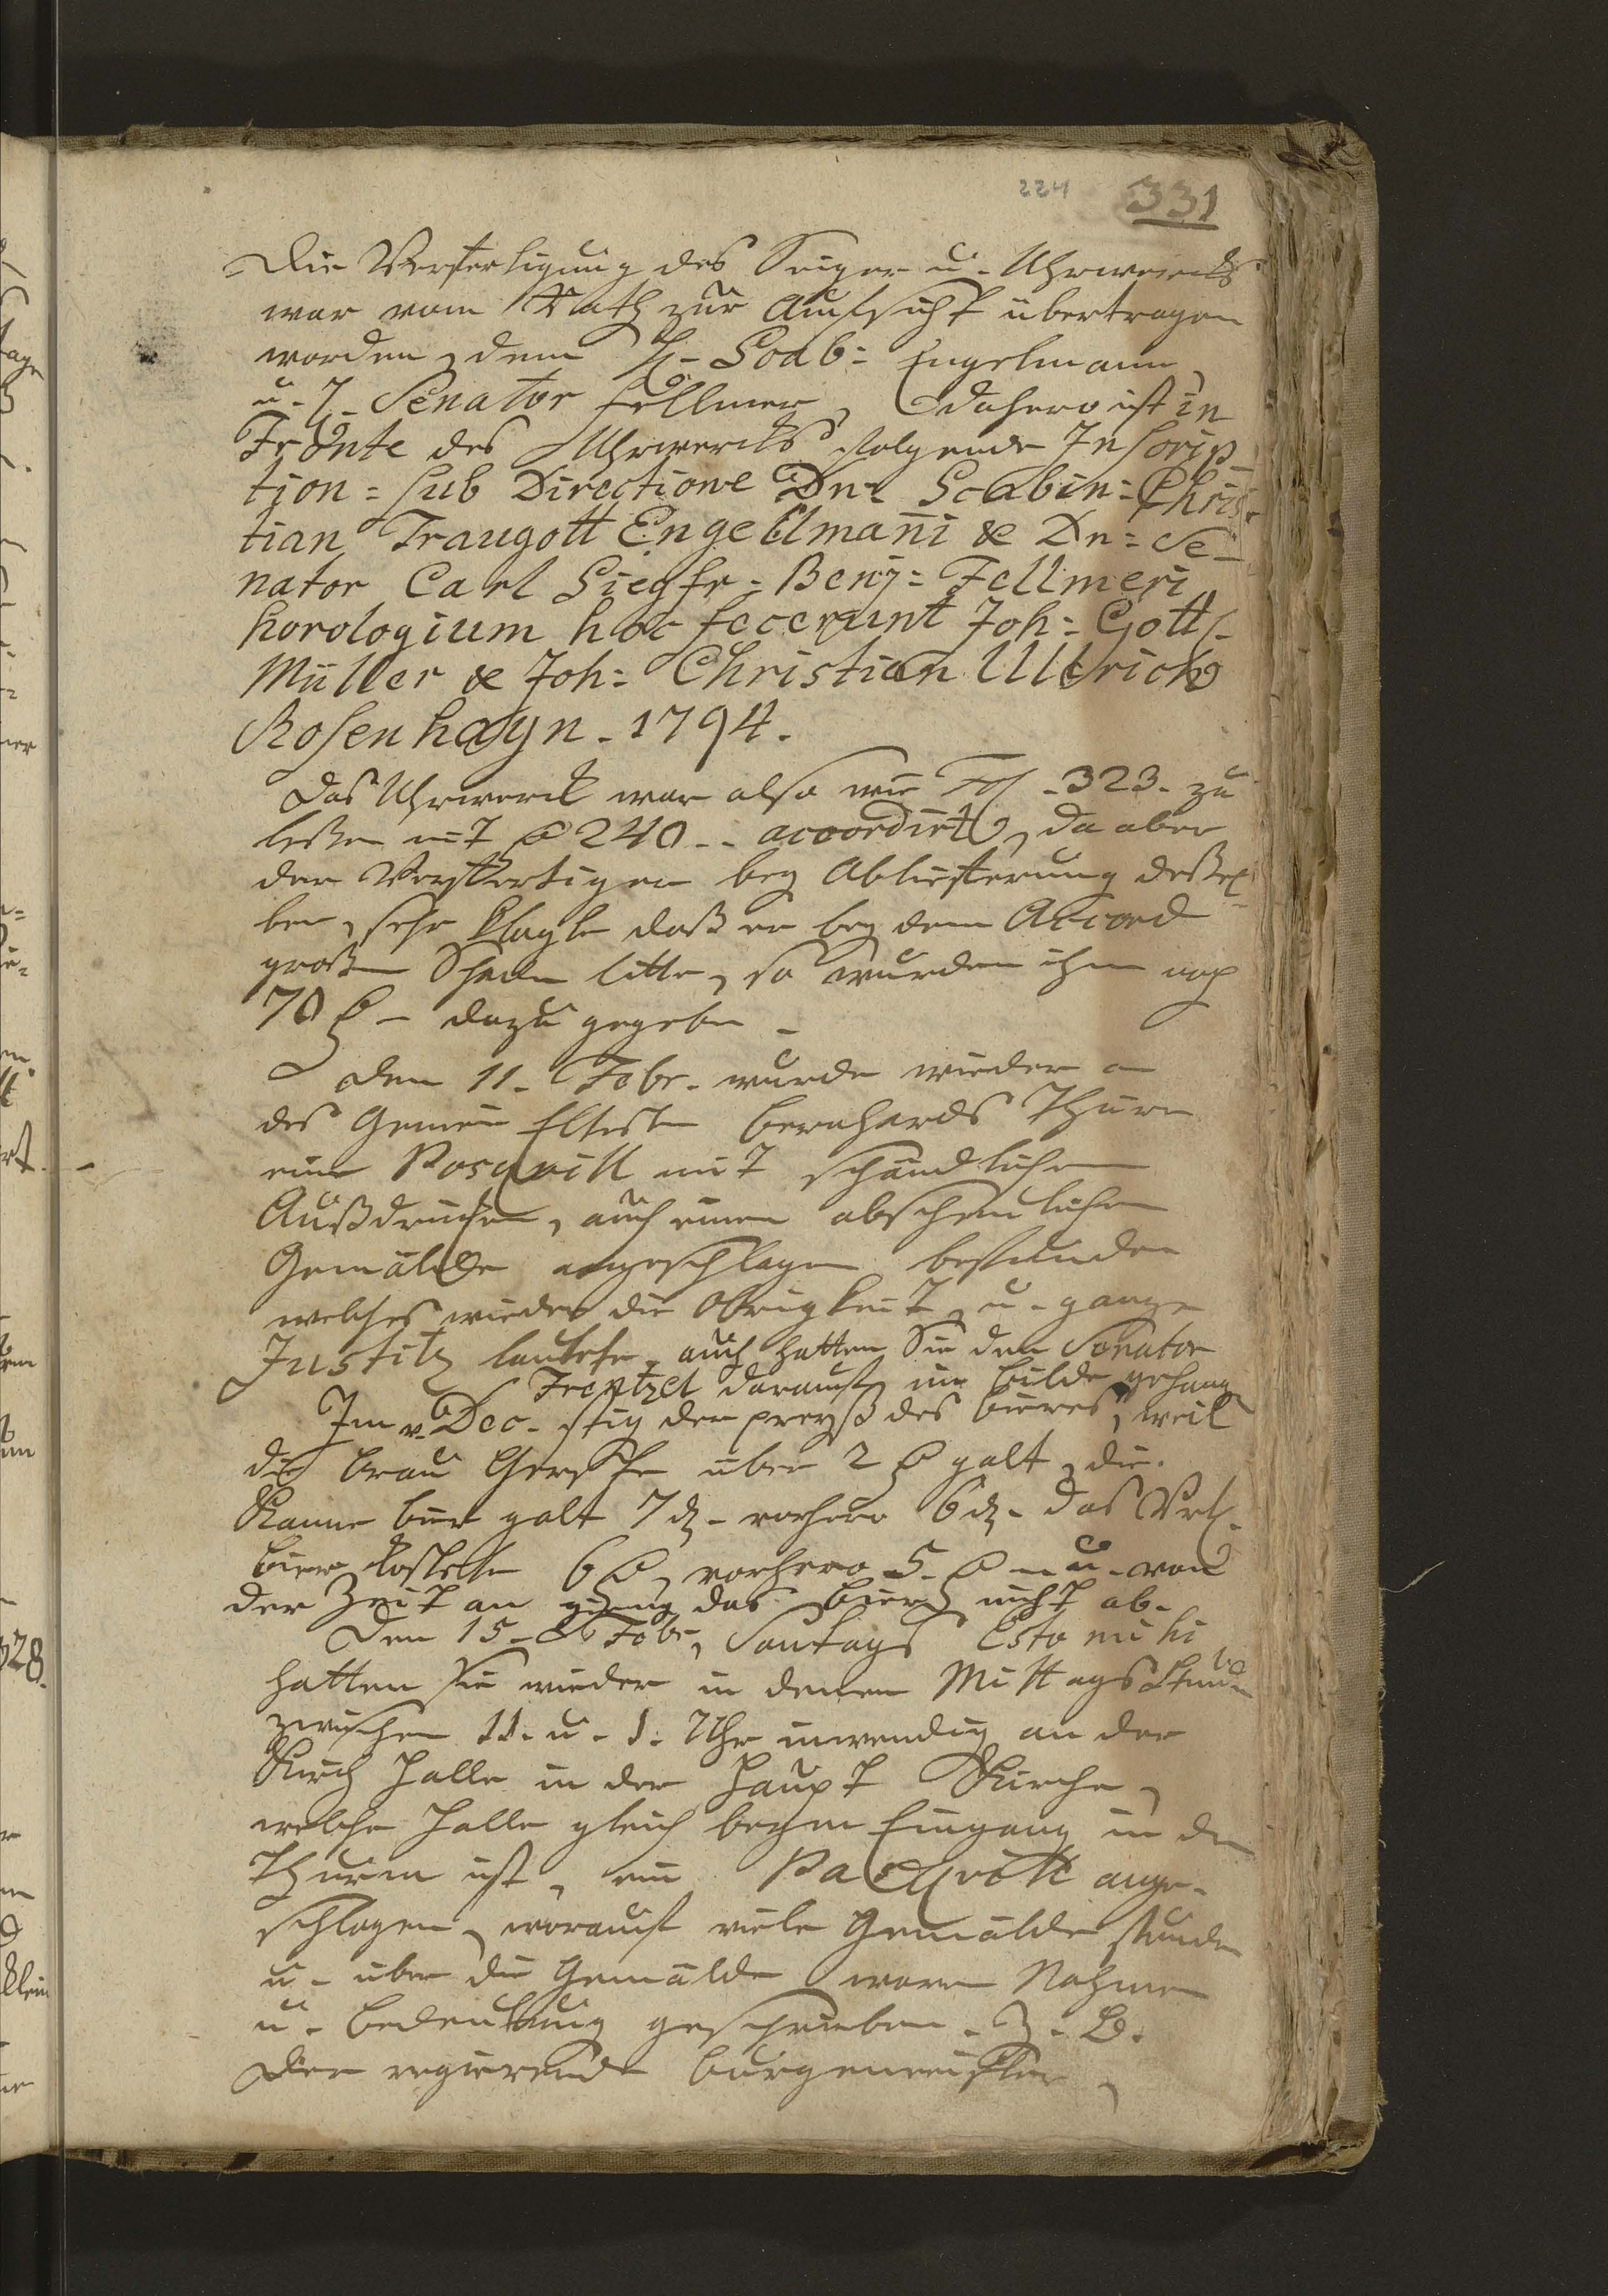 224 331
Die Verfertigung des Seiger u. Uhrwercks
war vom Rath zur Aufsicht übertragen
worden, dem H. Scab: Engelmann,
u. H. Senator Fellmer, Dahero ist in
Fronte des Uhrwercks folgende Inscrip
tion = sub Directione Dn: Scabin: Chris-
tian Traugott Engelmani & Dn: Se-
nator Carl Siegfr: Benj: Fellmeri
horologium hoc fecerunt Joh: Gottf.
Müller & Joh: Christian Ullrich
Rosenhayn. 1794.
Das Uhrwerck war also wie Fol. 323. zu
lesen mit 240 -- accordirt, da aber
der Verfertiger bey Ablieferung deßel
ben, sehr klagte daß er bey dem Accord
großen Schaden litte, so wurden ihm noch
70 - dazu gegeben -
Den 11. Febr. wurde wieder an
des Gemein Eltesten Bernhards Thüre
eine Pasquill mit schändlichen
Außdrucken, auch einen abscheulichen
Gemälde angeschlagen befunden
welches wieder die Obrigkeit, u. ganze
Justitz lautete, auch hatten Sie den Senator
Frentzel darauf, im Bilde gehang
Im v. Dec. stig der preyß des Bieres, weil
die Brau Gerste über 2 galt, die
Kanne bier galt 7 d. vorhero 6 d. das
bier kostete 6, vorhero 5. - u. von
der Zeit an gieng das Bier nicht ab.
Den 15. Febr, Sontags Esto mihi
hatten sie wieder in denen Mittags Stunden
zwischen 11. u. 1. Uhr inwendig an der
Kirch Halle in der Haupt Kirche,
welche Halle gleich beym Eingang in den
Thurm ist, ein Pasquill ange-
schlagen, worauf viele Gemälde stunden
u. über die Gemälde waren Nahmen
u. Bedeutung geschrieben. Z. B.
Der regierende Burgemeister,